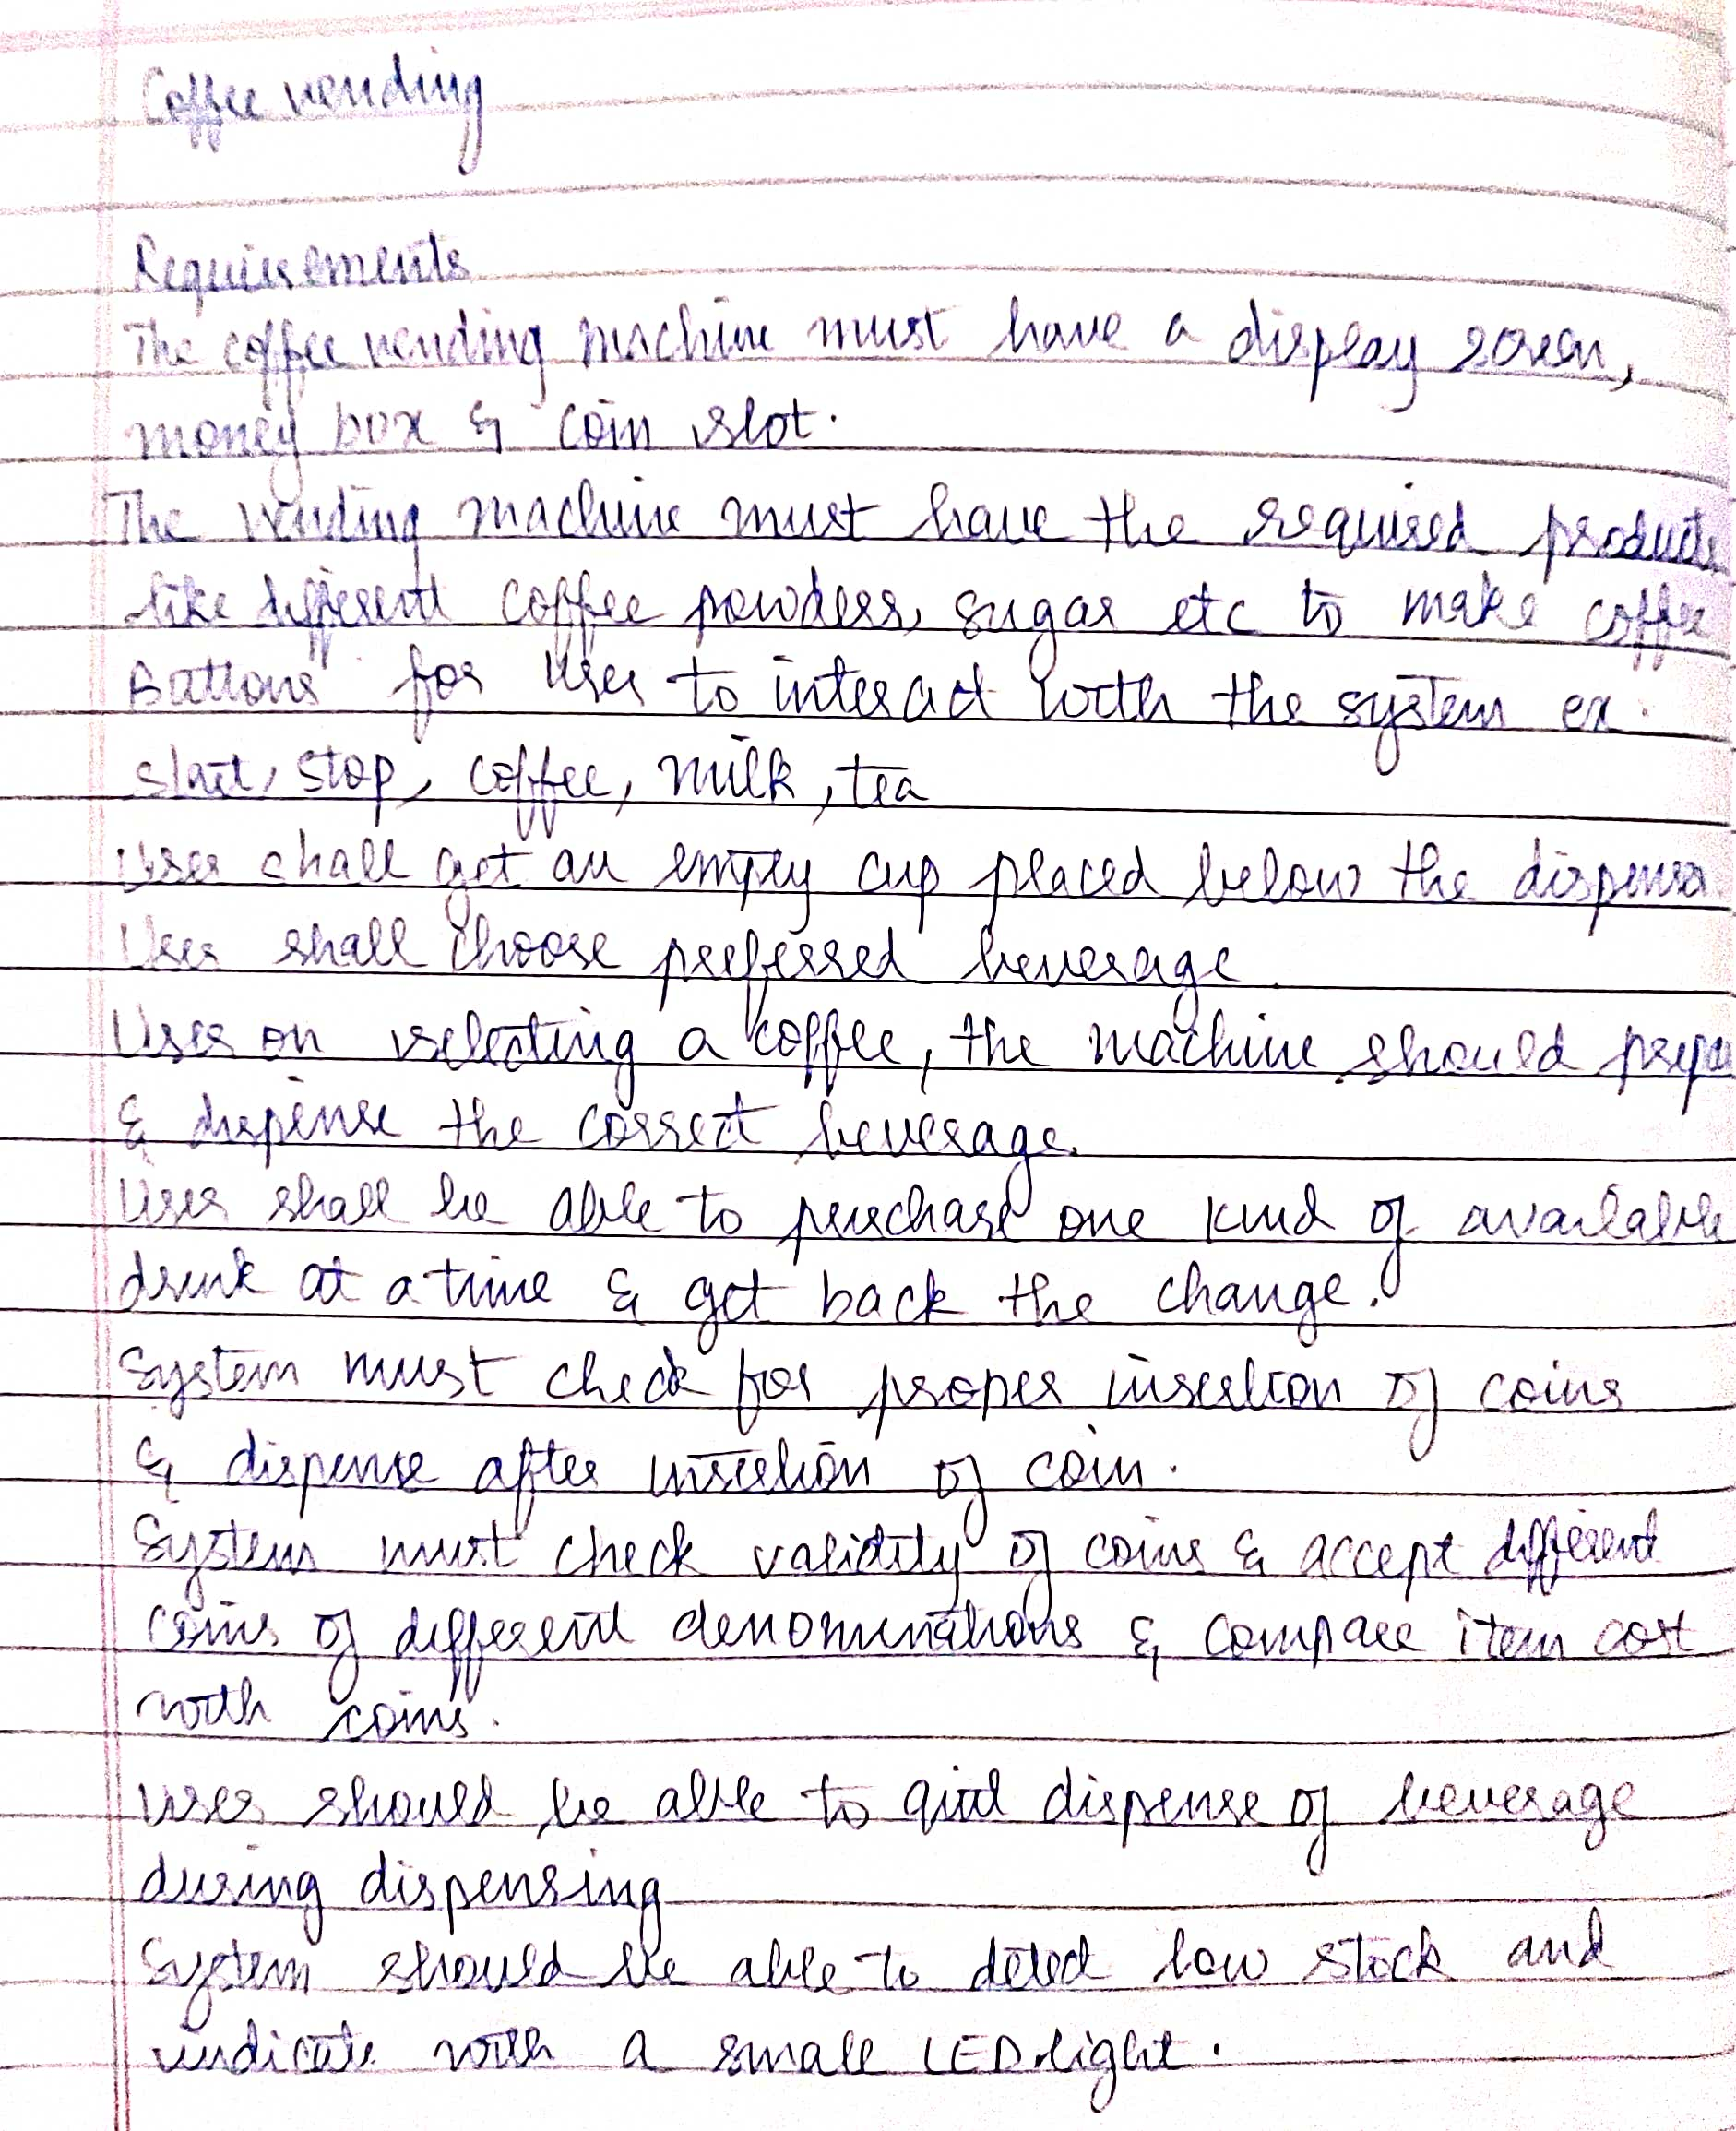 Coffee vending
Requirements
The coffee vending machine must have a display screen,
money box & coin slot.
The vending machine must have the required products
like different coffee powders, sugar etc to make coffee
Buttons for user to interact with the system ex.
start, stop, coffee, milk, tea
User shall get an empty cup placed below the dispensa
User shall choose preferred beverage
User on selecting a coffee, the machine should prepa
& dispense the correct beverage.
User shall be able to purchase one kind of available
drink at a time & get back the change.
System must check for proper insertion of coins
& dispense after insertion of coin.
System must check validity of coins & accept different
coins of different denominations & compare item cost
with coins.
User should be able to quit dispense of beverage
during dispensing
System should be able to detect low stock and
indicate with a small LED light.